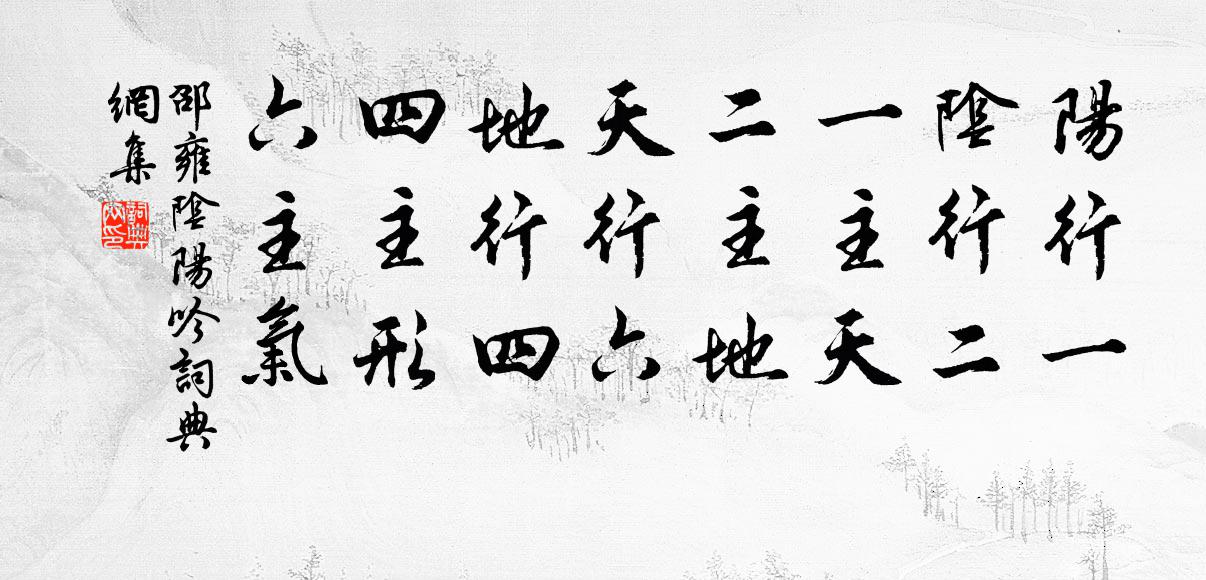 陽行一
陰行二
一主天
二主地
天行六
地行四
四主形
六主氣
邵雍陰陽吟詞典
網集